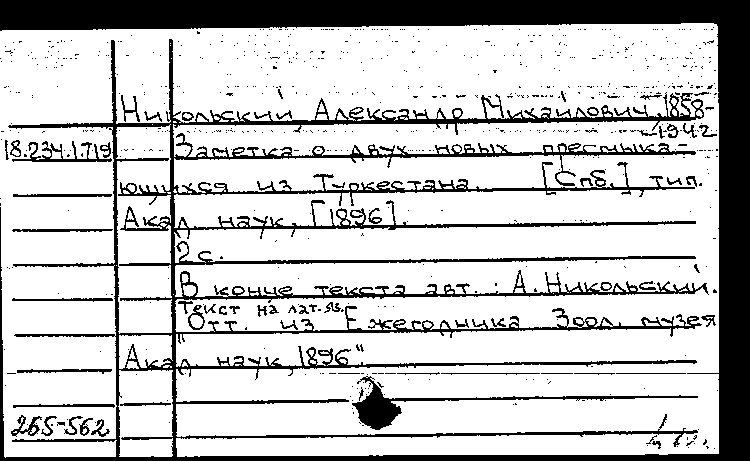 Никольский, Александр Михайлович, 1858-
1942
18.234.1.719 Заметка о двух новых пресмыка-
ющихся из Туркестана. [Спб.], тип.
Акад. наук, [1896].
2 с.
В конце текста авт.: А. Никольский.
Текст на лат. яз.
"Отт. из Ежегодника Зоол. музея
Акад. наук, 1896"
265-562